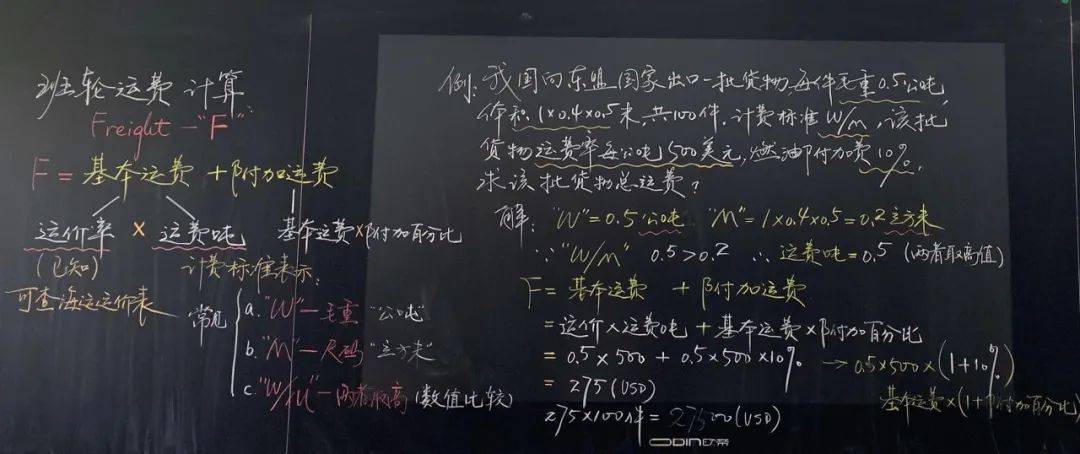 班轮运费计算:
Freight-"F"
F=基本运费+附加运费
运价率×运费吨
基本运费×附加百分比
(已知)
计费标准表示:
可查海运运价表
常见
a."W"—毛重"公吨"
b."M"—尺码"立方米"
c."W/M"—两者取高(数值比较)
例:我国向东盟国家出口一批货物,每件毛重0.5公吨,
体积1×0.4×0.5米,共100件.计费标准W/M,该批
货物运费率每公吨500美元,燃油附加费10%.
求该批货物总运费?
解:"W"=0.5公吨 "M"=1×0.4×0.5=0.2立方米
∵"W/M" 0.5>0.2 ∴运费吨=0.5(两者取高值)
F=基本运费+附加运费
=运价×运费吨+基本运费×附加百分比
=0.5×500+0.5×500×10% →0.5×500×(1+10%)
=275(USD)
基本运费×(1+附加百分比)
275×100件=27500(USD)
ODIN欧帝